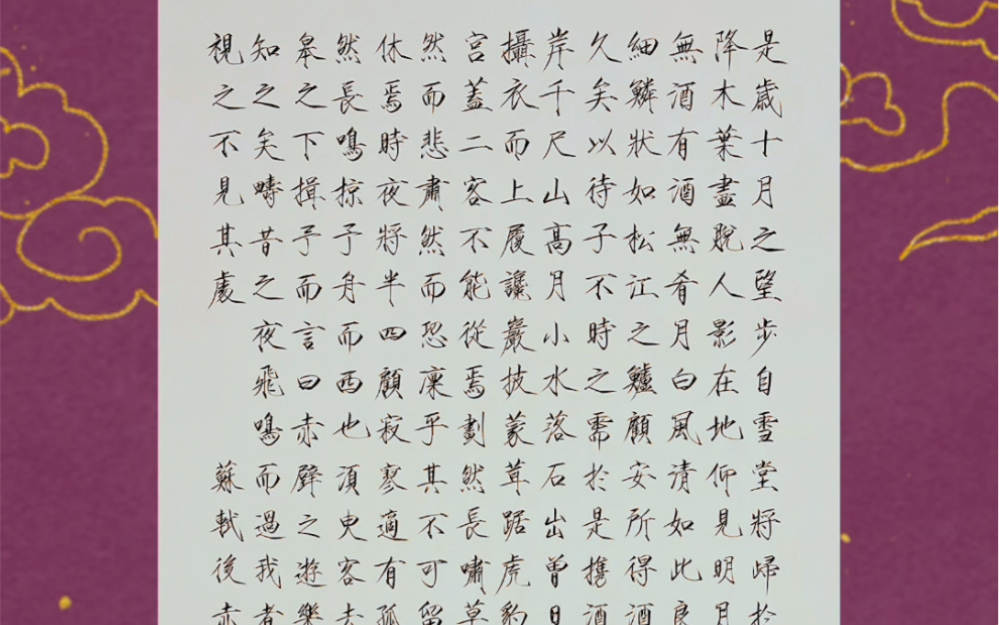 是歲十月之望步自雪堂將歸於
降木葉盡脫人影在地仰見明月
無酒有酒無肴月白風清如此良
細鱗狀如松江之鱸顧安所得酒
久矣以待子不時之需於是攜酒
岸千尺山高月小水落石出曾日
攝衣而上履讒巖披蒙茸踞虎豹
宮蓋二客不能從焉劃然長嘯草
然而悲肅然而恐凜乎其不可留
休焉時夜將半四顧寂寥適有孤
然長鳴掠予舟而西也須臾客去
皋之下揖予而言曰赤壁之遊樂
知之矣疇昔之夜飛鳴而過我者
視之不見其處 蘇軾後赤